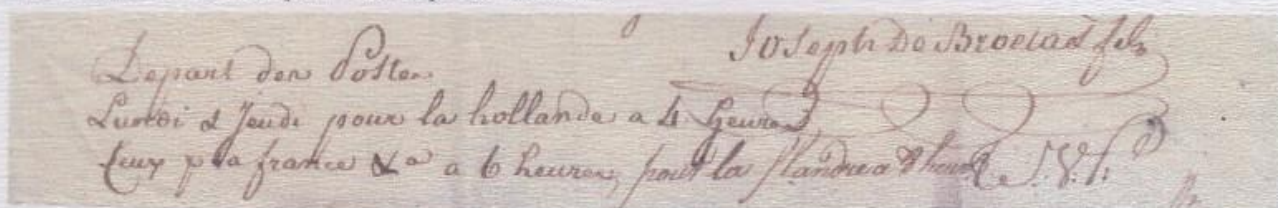 Joseph De Broeta fils
Depart des Postes
Lundi & Jeudi pour la hollande a 4 heures
Ceux pr la france &a a 6 heures, pour la flandre a 8 heures